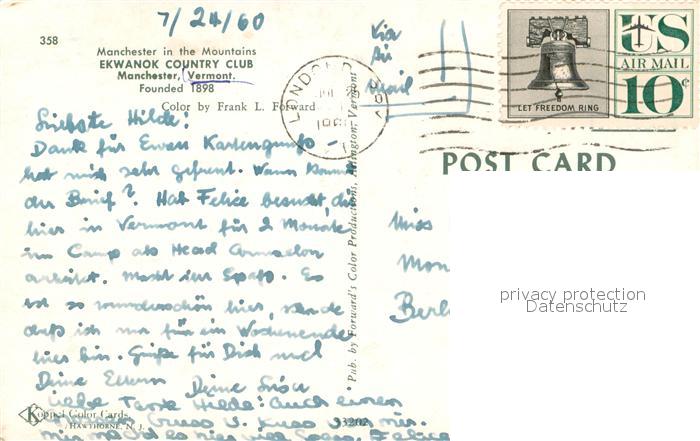 7/24/60
358
Manchester in the Mountains
EKWANOK COUNTRY CLUB
Manchester, Vermont.
Founded 1898
Color by Frank L. Forward
Via
Air
Mail
LONDON
US
AIR MAIL
10¢
LET FREEDOM RING
POST CARD
Liebste Hilde!
Dank für Euren Kartengruß –
hat mich sehr gefreut. Wann kommt
der Brief? Hab Felice besucht, die
hier in Vermont für 2 Monate
im Camp als Head Counselor
arbeitet. Macht ihr Spaß. Es
ist so wunderschön hier, schade
daß ich nur für ein Wochenende
hier bin. Grüße für Dich und
Deine Eltern Deine
Liebe Tante Hilde! Auch einen
Gruss u. Kuss von mir.
Mir macht es hier viel Spass. Felice
Miss
Mon
Berl
Pub. by Forward's Color Productions, Arlington, Vermont
privacy protection
Datenschutz
K
Koppel Color Cards
HAWTHORNE, N. J.
33202